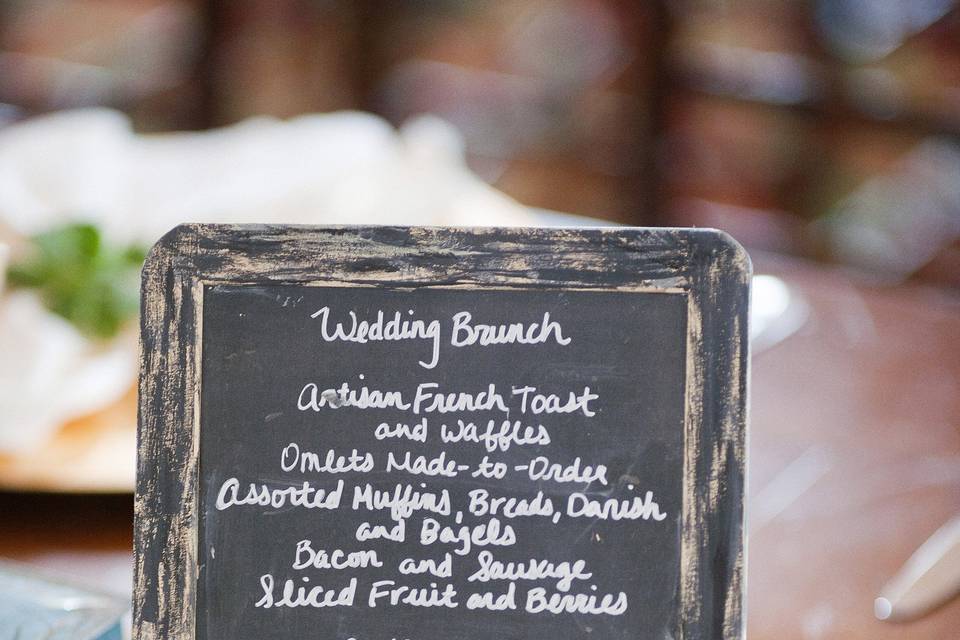 Wedding Brunch
Artisan French Toast
and Waffles
Omlets Made-to-Order
Assorted Muffins, Breads, Danish
and Bagels
Bacon and Sausage
Sliced Fruit and Berries